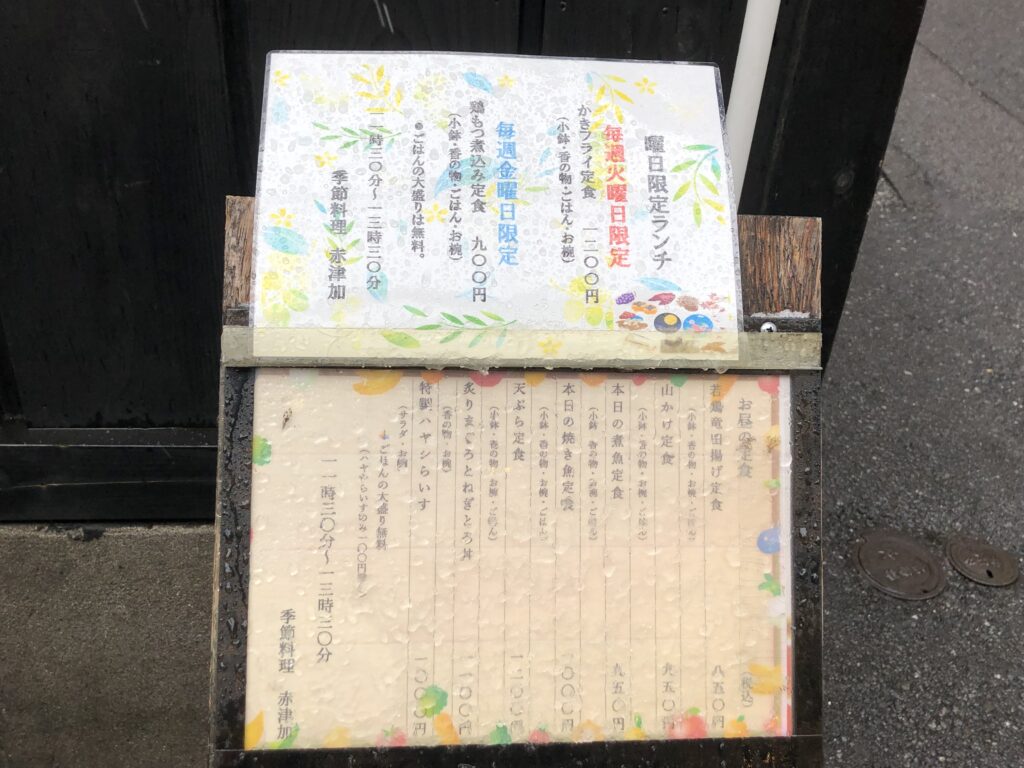 曜日限定ランチ
毎週火曜日限定
かきフライ定食 一二〇〇円
(小鉢・香の物・ごはん・お椀)
毎週金曜日限定
鶏もつ煮込み定食 九〇〇円
(小鉢・香の物・ごはん・お椀)
●ごはんの大盛りは無料。
一一時三〇分～一三時三〇分
季節料理 赤津加
お昼の定食 (税込)
若鶏竜田揚げ定食 八五〇円
(小鉢・香の物・お椀・ごはん)
山かけ定食 八五〇円
(小鉢・香の物・お椀・ごはん)
本日の煮魚定食 九五〇円
(小鉢・香の物・お椀・ごはん)
本日の焼き魚定食 一〇〇〇円
(小鉢・香の物・お椀・ごはん)
天ぷら定食 一二〇〇円
(小鉢・香の物・お椀・ごはん)
炙りまぐろとねぎとろ丼 一一〇〇円
(香の物・お椀)
特製ハヤシらいす 一〇〇〇円
(サラダ・お椀)
ごはんの大盛り無料
(ハヤシらいすのみ一〇〇円増)
一一時三〇分～一三時三〇分
季節料理 赤津加